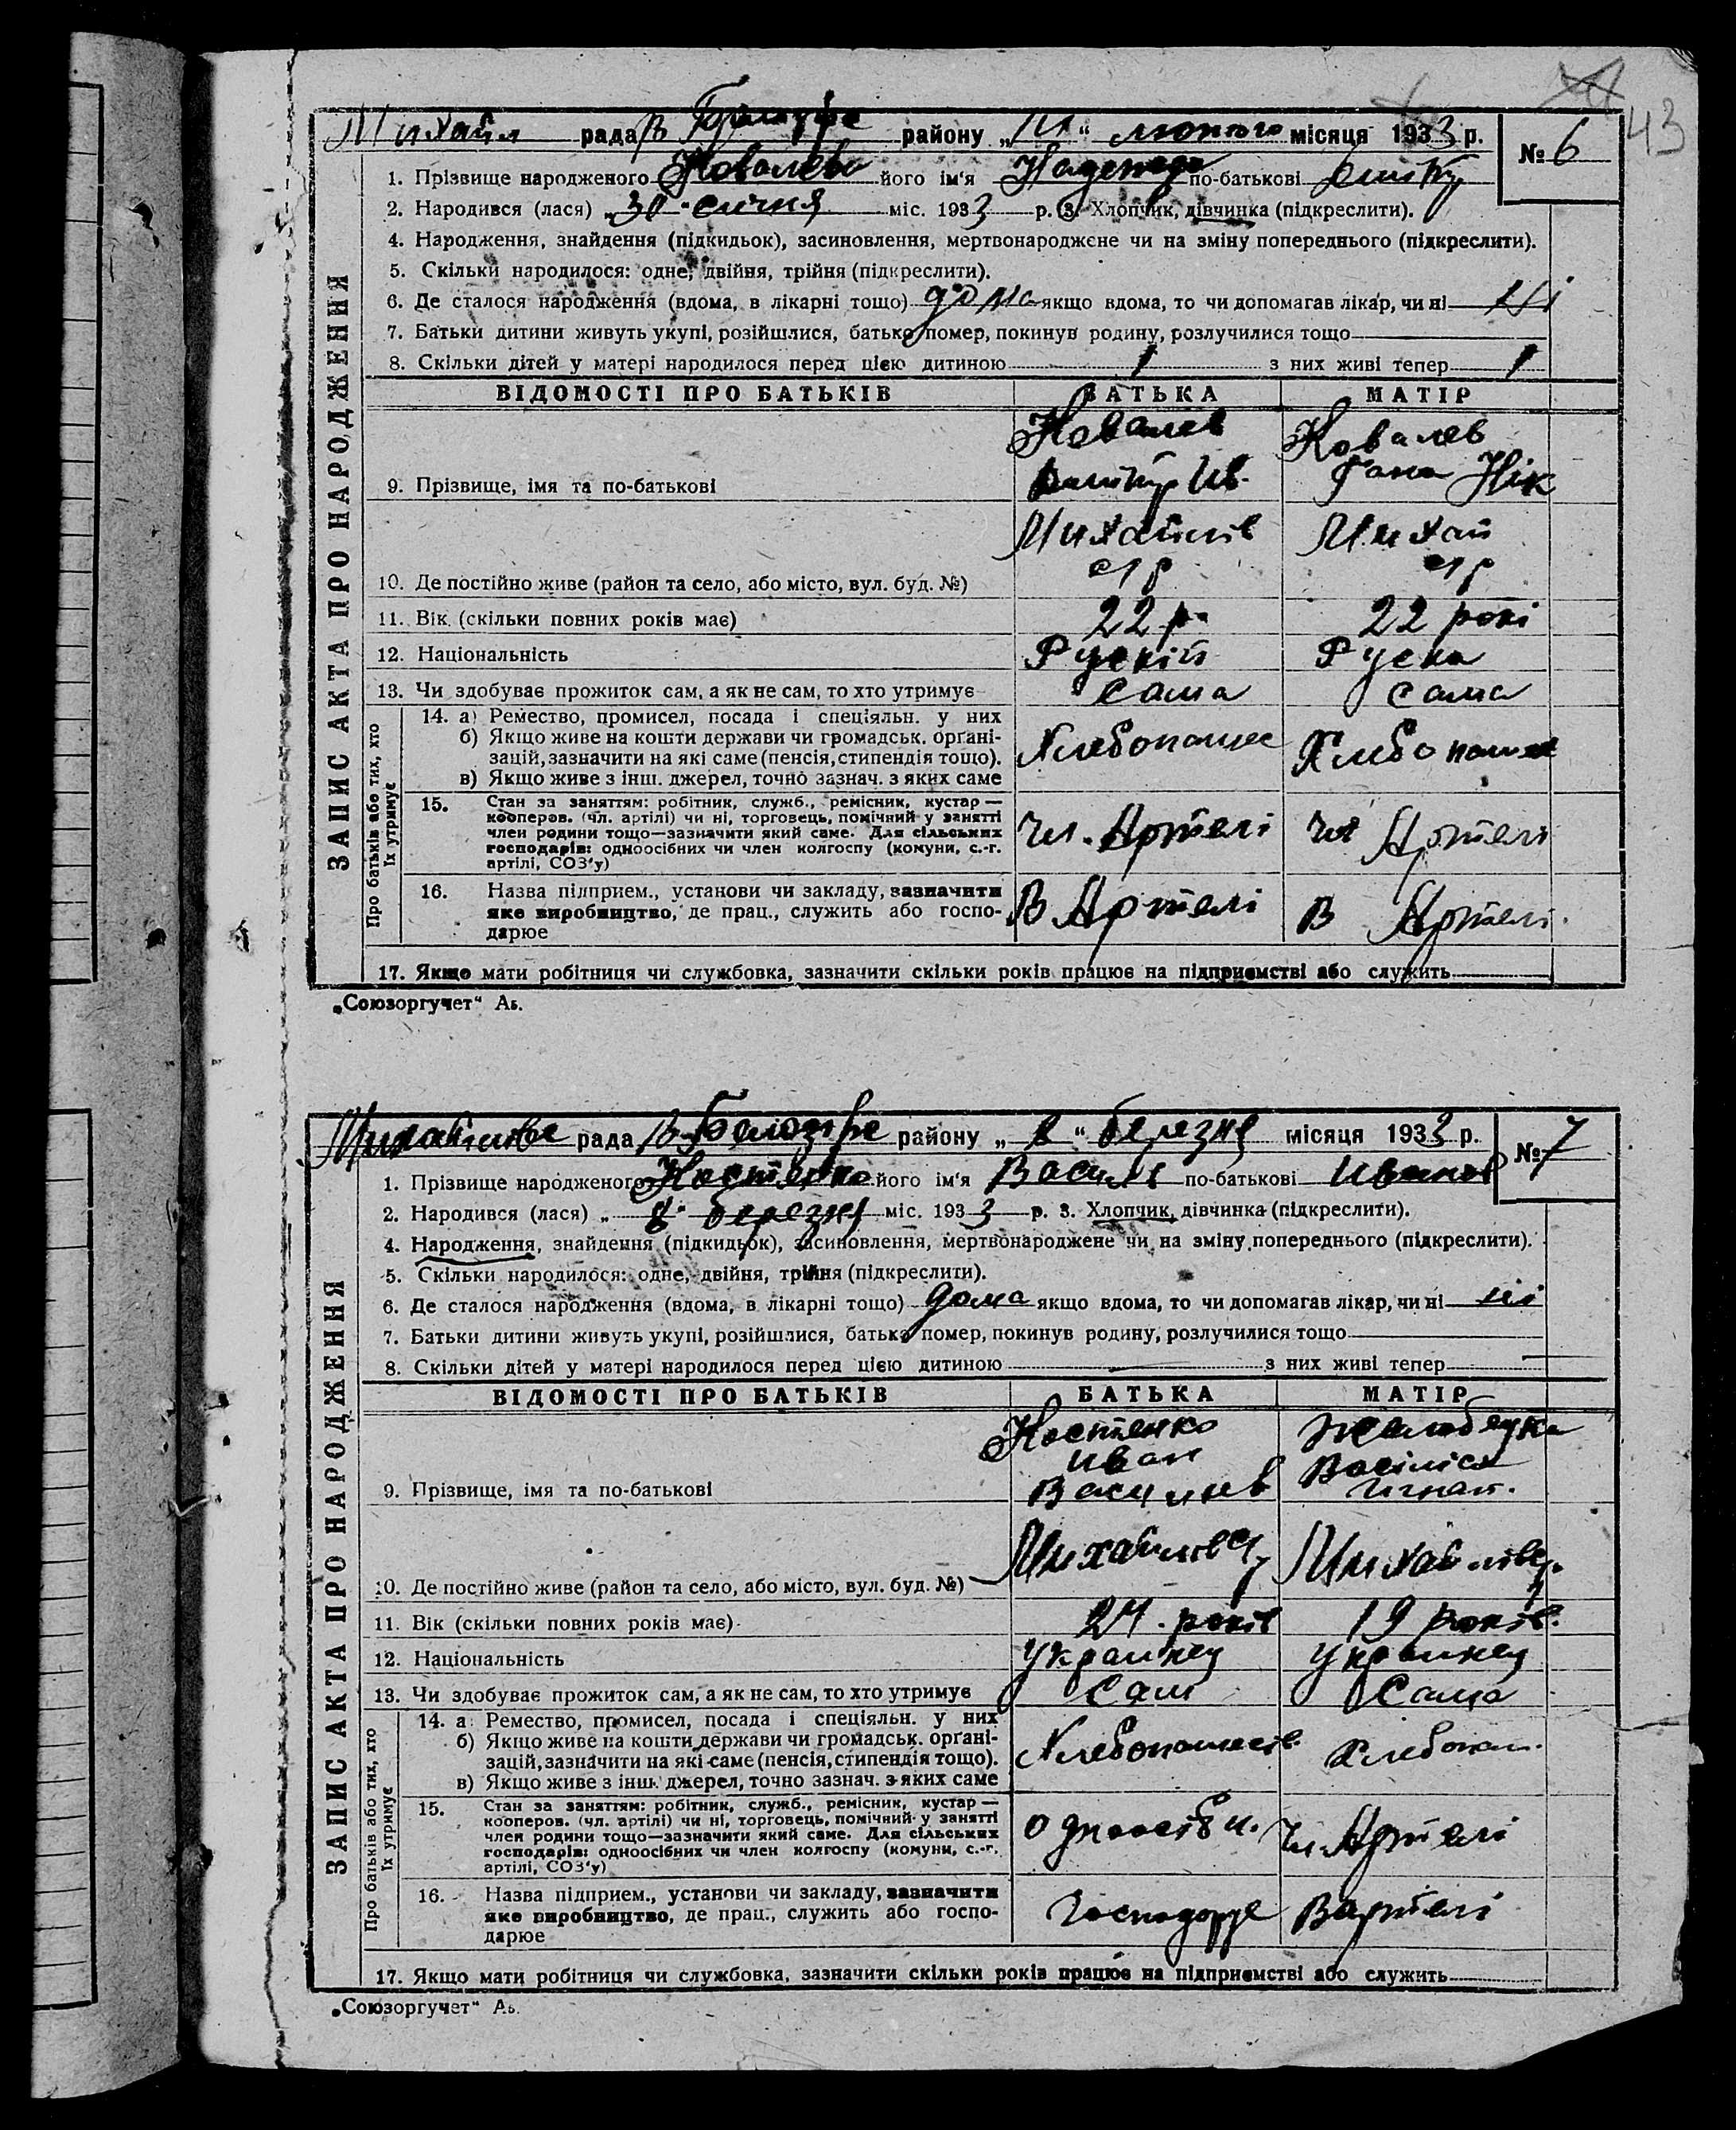 43
Михайл рада В Білозірс району „ “ лютого місяця 1933 р. № 6
1. Прізвище народженого Ковалева його ім'я Надежда по-батькові
2. Народився (лася) „30“ січня міс. 1933 р. 3. Хлопчик, дівчинка (підкреслити).
4. Народження, знайдення (підкидьок), засиновлення, мертвонароджене чи на зміну попереднього (підкреслити).
5. Скільки народилося: одне, двійня, трійня (підкреслити).
6. Де сталося народження (вдома, в лікарні тощо) дома якщо вдома, то чи допомагав лікар, чи ні ні
7. Батьки дитини живуть укупі, розійшлися, батько помер, покинув родину, розлучилися тощо
8. Скільки дітей у матері народилося перед цією дитиною 1 з них живі тепер 1
ВІДОМОСТІ ПРО БАТЬКІВ БАТЬКА МАТІР
Ковалев Ковалев
9. Прізвище, імя та по-батькові Ив. Гана Нік
Михайлів Михай
10. Де постійно живе (район та село, або місто, вул. буд. №)
11. Вік (скільки повних років має) 22 р. 22 рокі
12. Національність Рускій Руска
13. Чи здобуває прожиток сам, а як не сам, то хто утримує сама сама
14. а) Ремество, промисел, посада і спеціяльн. у них
б) Якщо живе на кошти держави чи громадськ. орґані-
зацій, зазначити на які саме (пенсія, стипендія тощо). Хлебопашес Хлебопашес
в) Якщо живе з інш. джерел, точно зазнач. з яких саме
15. Стан за заняттям: робітник, служб., ремісник, кустар —
кооперов. (чл. артілі) чи ні, торговець, помічний у занятті
член родини тощо—зазначити який саме. Для сільських
господарів: одноосібних чи член колгоспу (комуни, с.-г.
артілі, СОЗ'у) Чл. Артелі Чл Артелі
16. Назва підприєм., установи чи закладу, зазначити
яке виробництво, де прац., служить або госпо-
дарює В Артелі В Артелі
17. Якщо мати робітниця чи службовка, зазначити скільки років працює на підприємстві або служить
ЗАПИС АКТА ПРО НАРОДЖЕННЯ
Про батьків або тих, хто
їх утримує
„Союзоргучет“ Аь.
Михайлівс рада В-Білозірс району „8“ березня місяця 1933 р. № 7
1. Прізвище народженого Костенко його ім'я Василь по-батькові Иванов
2. Народився (лася) „8“ березня міс. 1933 р. 3. Хлопчик, дівчинка (підкреслити).
4. Народження, знайдення (підкидьок), засиновлення, мертвонароджене чи на зміну попереднього (підкреслити).
5. Скільки народилося: одне, двійня, трійня (підкреслити).
6. Де сталося народження (вдома, в лікарні тощо) дома якщо вдома, то чи допомагав лікар, чи ні ні
7. Батьки дитини живуть укупі, розійшлися, батько помер, покинув родину, розлучилися тощо
8. Скільки дітей у матері народилося перед цією дитиною — з них живі тепер —
ВІДОМОСТІ ПРО БАТЬКІВ БАТЬКА МАТІР
Костенко
Иван Васіліса
9. Прізвище, імя та по-батькові Васильев Игнат.
10. Де постійно живе (район та село, або місто, вул. буд. №) Михайлівц Михайлівц.
11. Вік (скільки повних років має) 24 років 19 років.
12. Національність Украинец Украинец
13. Чи здобуває прожиток сам, а як не сам, то хто утримує Сам Сама
14. а) Ремество, промисел, посада і спеціяльн. у них
б) Якщо живе на кошти держави чи громадськ. орґані-
зацій, зазначити на які саме (пенсія, стипендія тощо). Хлебопашеств. Хлебопаш.
в) Якщо живе з інш. джерел, точно зазнач. з яких саме
15. Стан за заняттям: робітник, служб., ремісник, кустар —
кооперов. (чл. артілі) чи ні, торговець, помічний у занятті
член родини тощо—зазначити який саме. Для сільських
господарів: одноосібних чи член колгоспу (комуни, с.-г.
артілі, СОЗ'у) одноосібн. Чл. Артелі
16. Назва підприєм., установи чи закладу, зазначити
яке виробництво, де прац., служить або госпо-
дарює Господарує Вартелі
17. Якщо мати робітниця чи службовка, зазначити скільки років працює на підприємстві або служить
ЗАПИС АКТА ПРО НАРОДЖЕННЯ
Про батьків або тих, хто
їх утримує
„Союзоргучет“ Аь.